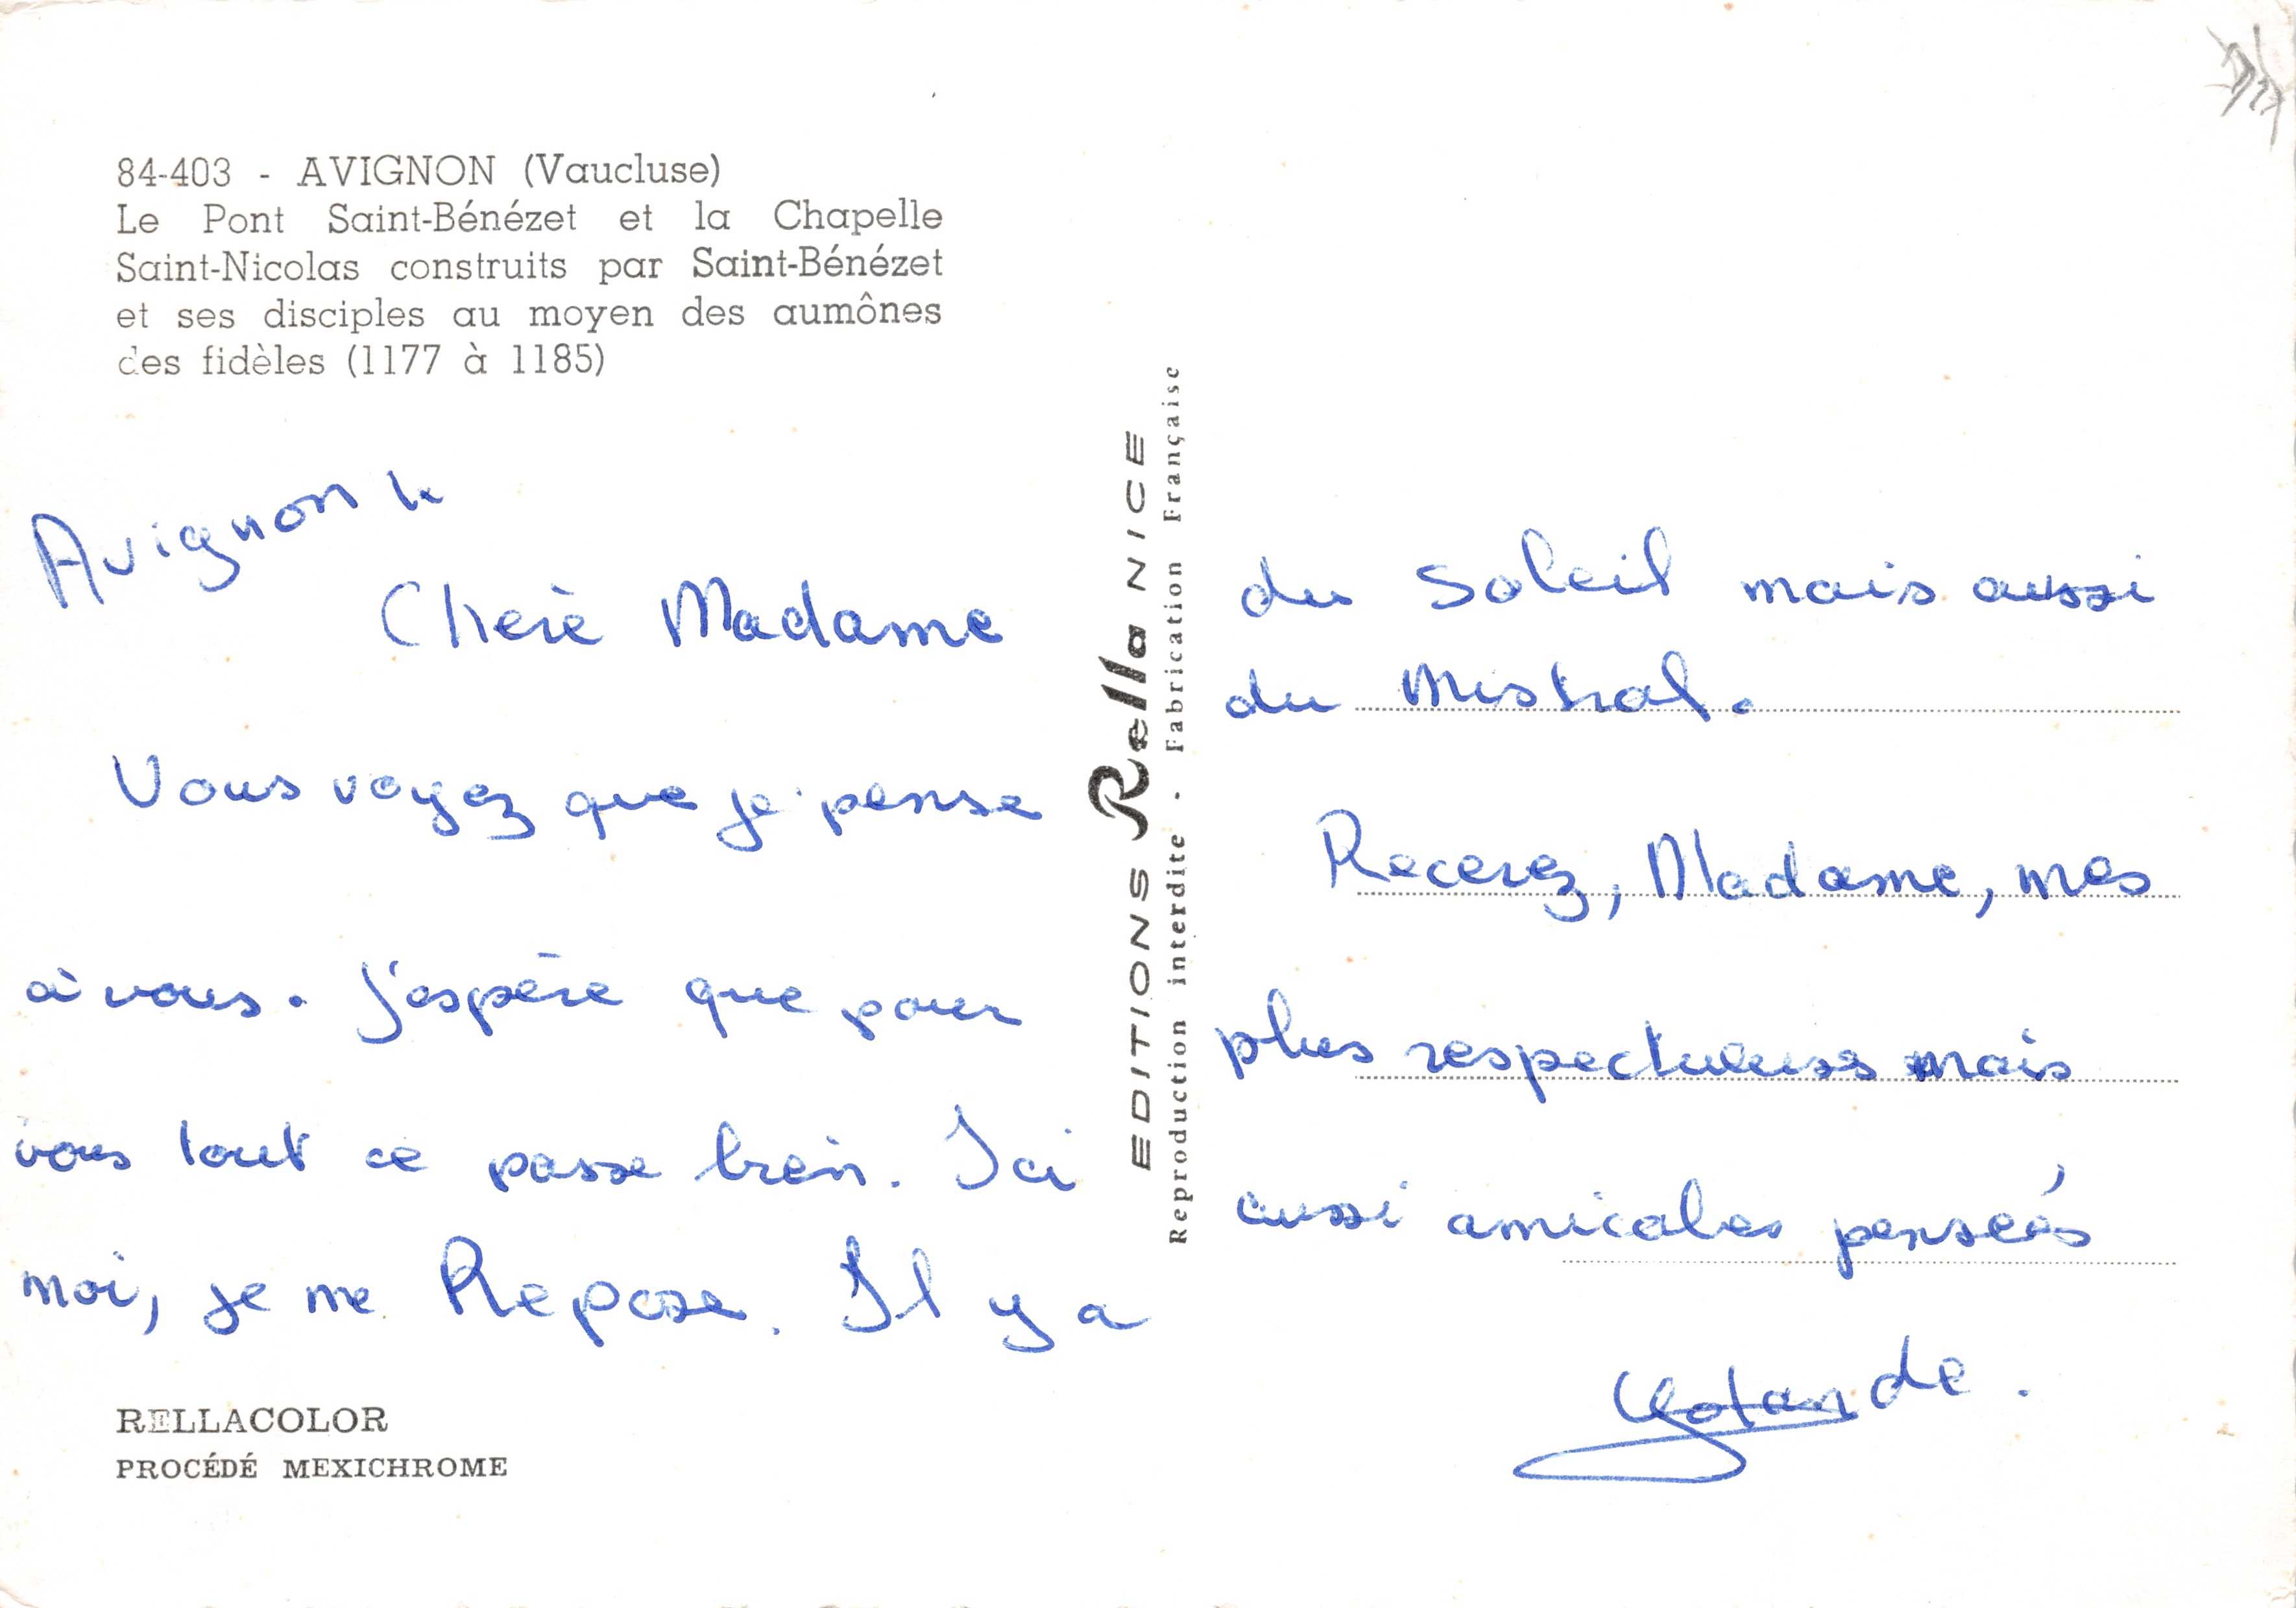 84-403 - AVIGNON (Vaucluse)
Le Pont Saint-Bénézet et la Chapelle
Saint-Nicolas construits par Saint-Bénézet
et ses disciples au moyen des aumônes
des fidèles (1177 à 1185)
Avignon le
Cherè Madame
Vous voyez que je pense
à vous. J'espère que pour
vous tout ce passe bien. Ici
moi, je me Repose. Il y a
RELLACOLOR
PROCÉDÉ MEXICHROME
EDITIONS Rella NICE
Reproduction interdite - Fabrication Française
du soleil mais aussi
du Mistral.
Recevez, Madame, mes
plus respectueuses mais
aussi amicales pensées
Yolande.